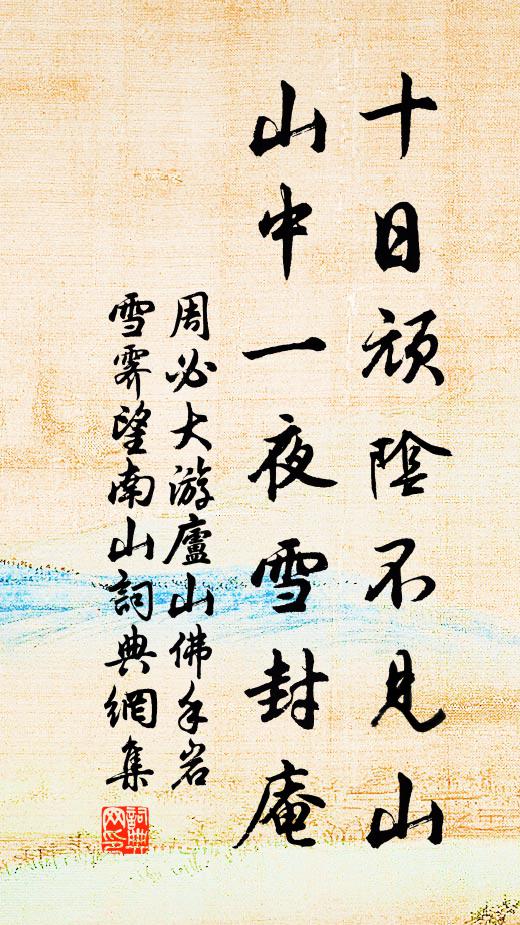 十日頑陰不見山
山中一夜雪封庵
周必大游廬山佛手岩
雪霽望南山詞典網集
詞典
网印